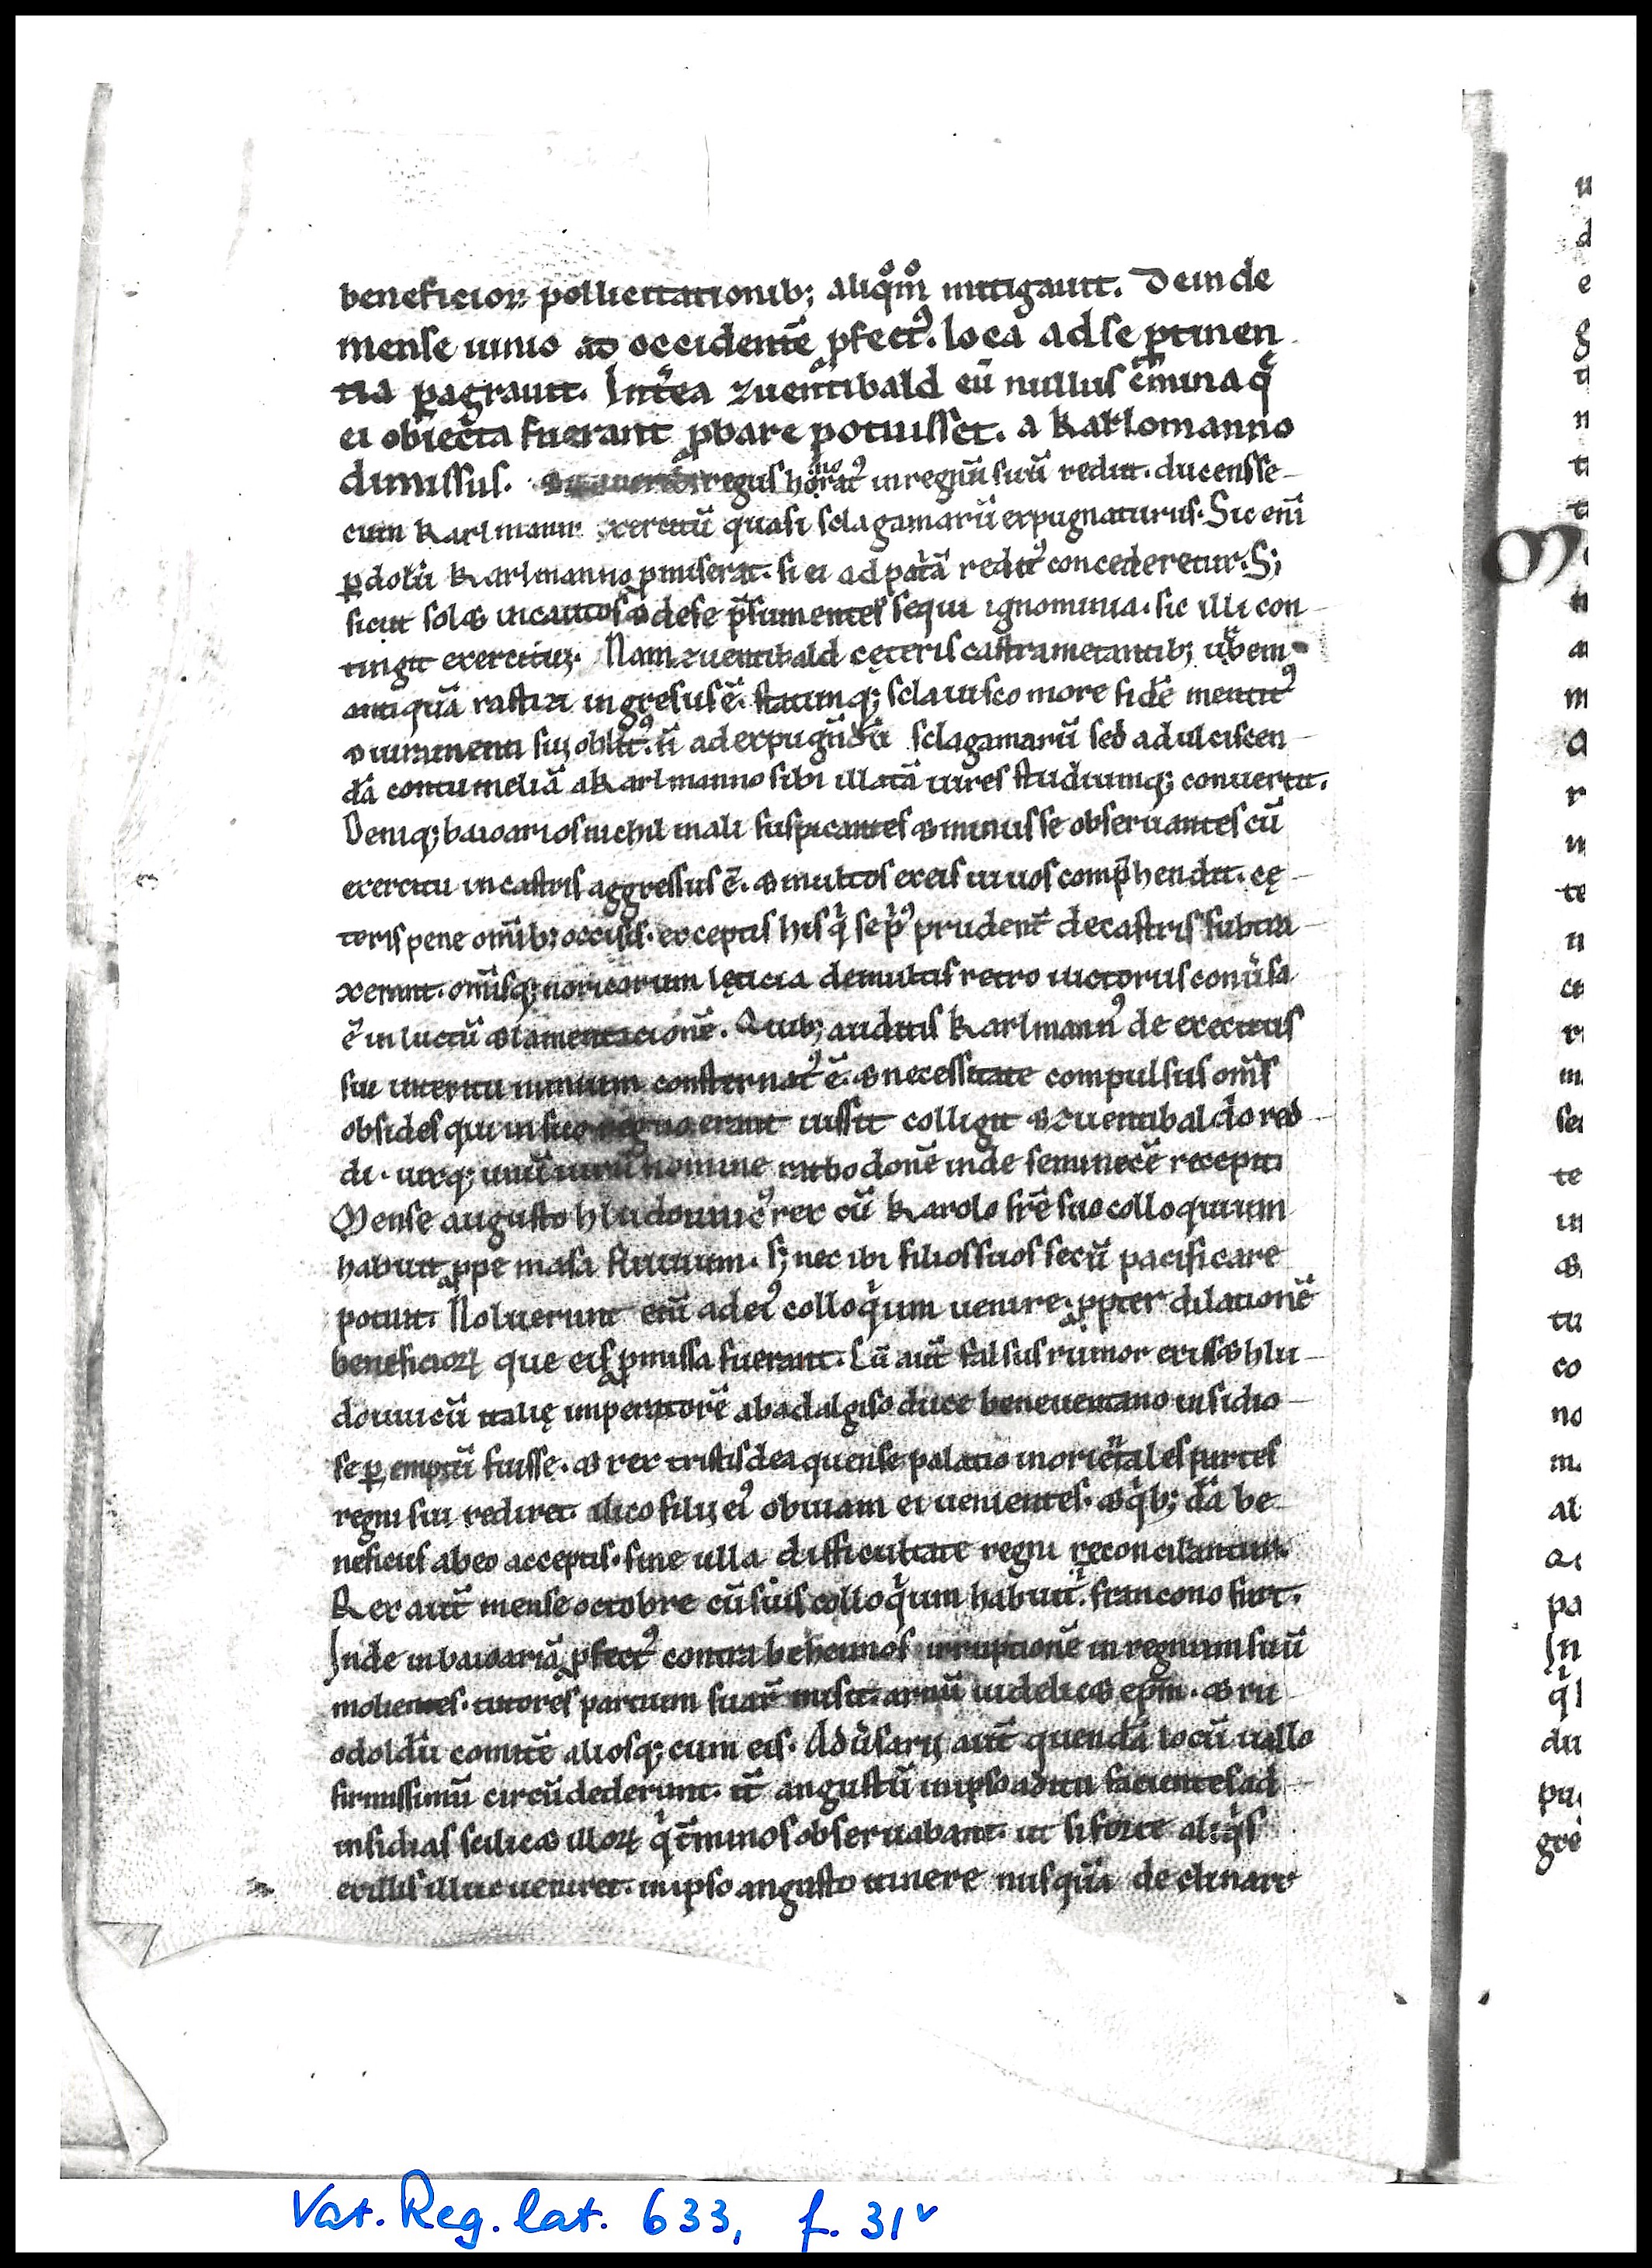 beneficioꝝ pollicitationib; aliqͦmͦ mitigauit. Deinde
mense iunio ad occidentē ꝓfectꝰ. loca ad se ꝑtinen
tia ꝑagrauit. Interea zuentibald cū nullus c̄mina q̄
ei obiecta fuerant ꝓbare potuisset. a Karlomanno
dimissus. & muneribꝰ regiis honoratꝰ in regnū suū rediit. ducens se-
cum Karlmanni exercitū quasi sclagamarū expugnaturus. Sic eni͂
ꝑ dolū Karlmanno ꝓmiserat. si ei ad pat͛ā reditꝰ concederetur. S;
sicut sol& incautos & de se p̄sumentes sequi ignominia. sic illi con-
tingit exercitui. Nam zuentibald cęteris castrametantib; urbem
antiquā rastizi ingresus ē. statimq; sclauisco more fidē mentitꝰ
& iuramenti sui oblitꝰ. n̄ ad expugnādū sclagamarū sed ad ulciscen-
dā contumeliā a Karlmanno sibi illatā uires studiumq; conuertit.
Deniq; baioarios nichil mali suspicantes & minus se obseruantes cū
exercitu in castris aggressus ē. & multos ex eis uiuos comp̄hendit. cę-
teris pene om̄ib; occisis. exceptis his qͥ se pͥꝰ prudent̄ de castris subtra-
xerunt. om̄isq; noricorum lęticia de multis retro uictoriis conuersa
ē in luctū & lamentacionē. Quib; auditis Karlmannꝰ de exercitus
sui interitu nimium consternatꝰ ē. & necessitate compulsus om̄s
obsides qui in suo regno erant iussit colligi & zuentibaldo red-
di. uixq; unū uirū nomine ratbodonē inde seminecē recepit.
Mense augusto hludouuicꝰ rex cū Karolo fr̄e suo colloquium
habuit ꝓpe masa fluuium. s; nec ibi filios suos secū pacificare
potuit. Noluerunt enī ad eiꝰ colloqͥum uenire. ꝓpter dilationē
beneficioꝝ que eis ꝓmissa fuerant. Cū aut̄ falsus rumor exiss& hlu-
douuicū italię imperatorē ab adalgiso duce beneuentano insidio-
se ꝑemptū fuisse. & rex tristis de aquense palatio in orientales partes
regni sui rediret. ilico filii eiꝰ obuiam ei uenientes. & qͥb;dā be-
neficiis ab eo acceptis. sine ulla difficultate regni reconciliantur.
Rex aut̄ mense octobre cū suis colloqͥum habuit. francono furt.
Inde in baioariā ꝓfectꝰ contra behemos irruptionē in regnum suū
molientes. tutores partium suarū misit. arnū uidelic& ep̄m. & ru-
odoldū comitē aliosq; cum eis. Aduersarii aut̄ quendā locū uallo
firmissimū circūdederunt. it̄ angustū in ipso aditu facientes ad
insidias scilic& illoꝝ qͥ t̄minos obseruabant. ut si forte aliqͥs
ex illis illuc ueniret. in ipso angusto itinere nusquā declinare
Vat. Reg. lat. 633, f. 31ᵛ